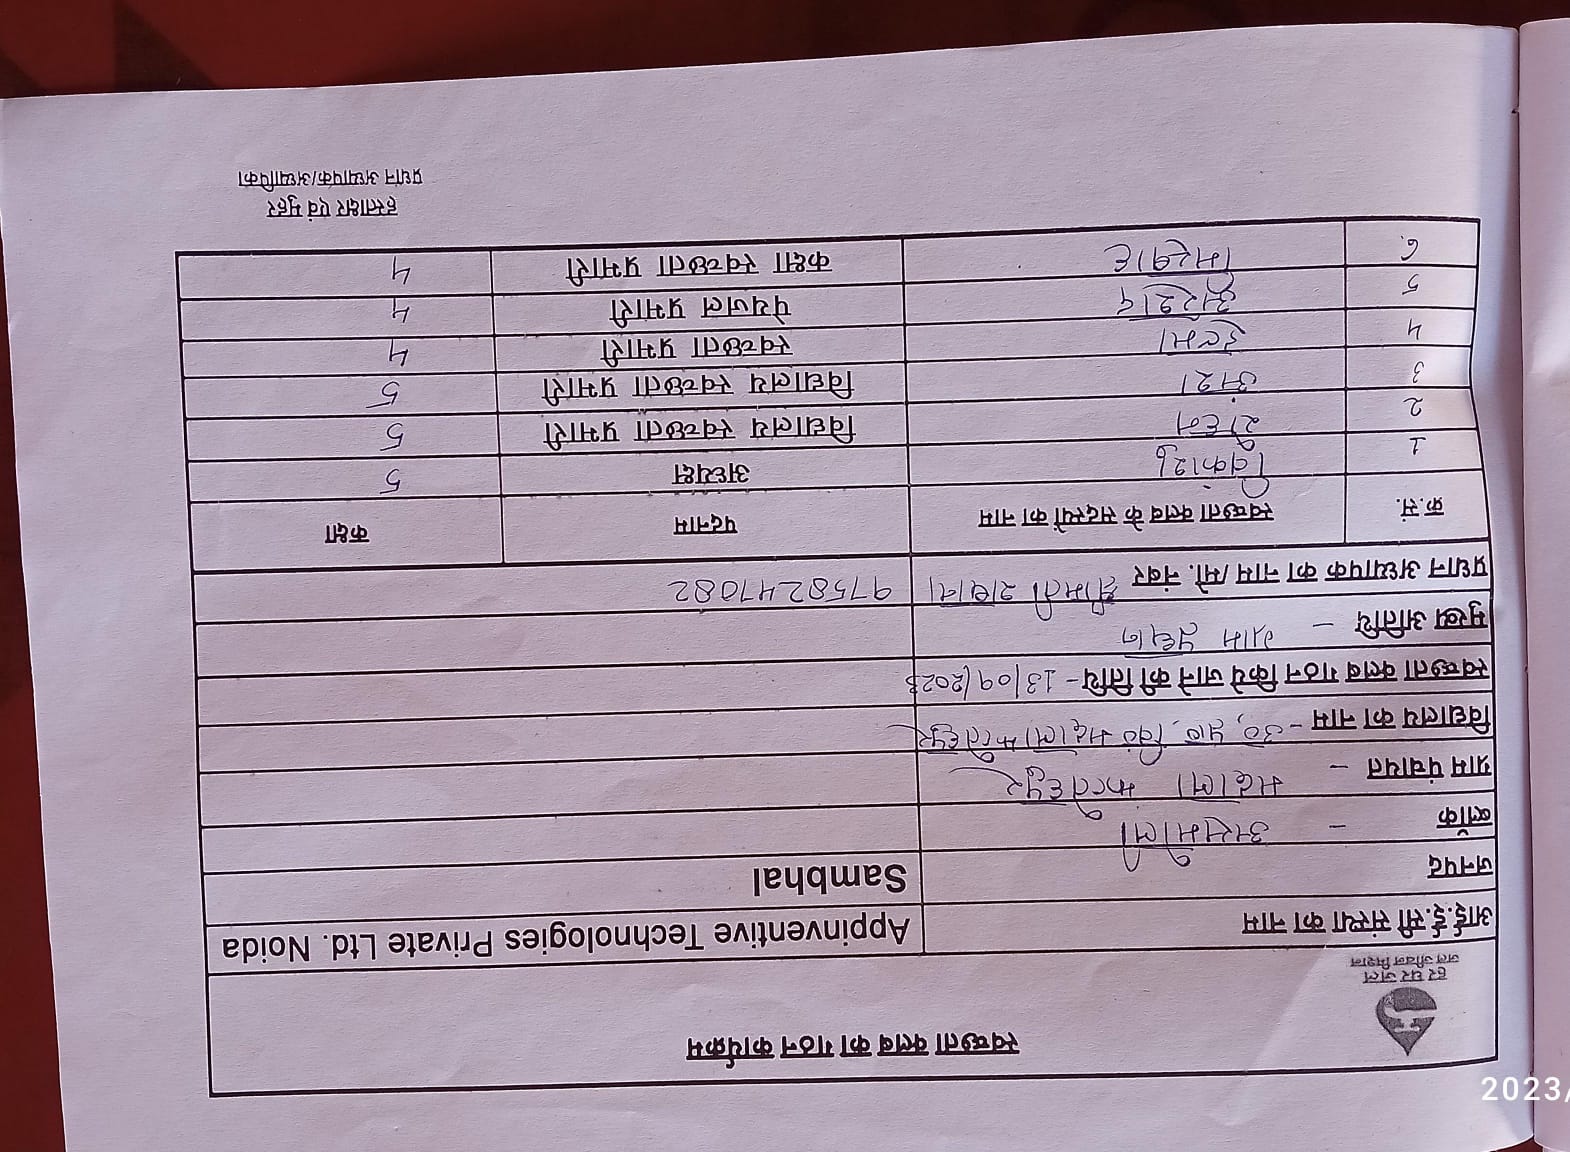 स्वच्छता क्लब का गठन कार्यक्रम
हर घर जल
जल जीवन मिशन
आई.ई.सी संस्था का नाम Appinventive Technologies Private Ltd. Noida
जनपद Sambhal
ब्लॉक - असमोली
ग्राम पंचायत - मढाला फत्तेहपुर
विद्यालय का नाम - उ० प्रा० वि० मढाला फत्तेहपुर
स्वच्छता क्लब गठन किये जाने की तिथि - 13/09/2023
मुख्य अतिथि - ग्राम प्रधान
प्रधान अध्यापक का नाम/मो. नंबर श्रीमती शबाना 9758247082
क्र.सं. स्वच्छता क्लब के सदस्यों का नाम पदनाम कक्षा
1 अध्यक्ष 5
2 विद्यालय स्वच्छता प्रभारी 5
3 विद्यालय स्वच्छता प्रभारी 5
4 स्वच्छता प्रभारी 4
5 पेयजल प्रभारी 4
6. कक्षा स्वच्छता प्रभारी 4
हस्ताक्षर एवं मुहर
प्रधान अध्यापक/अध्यापिका
2023/